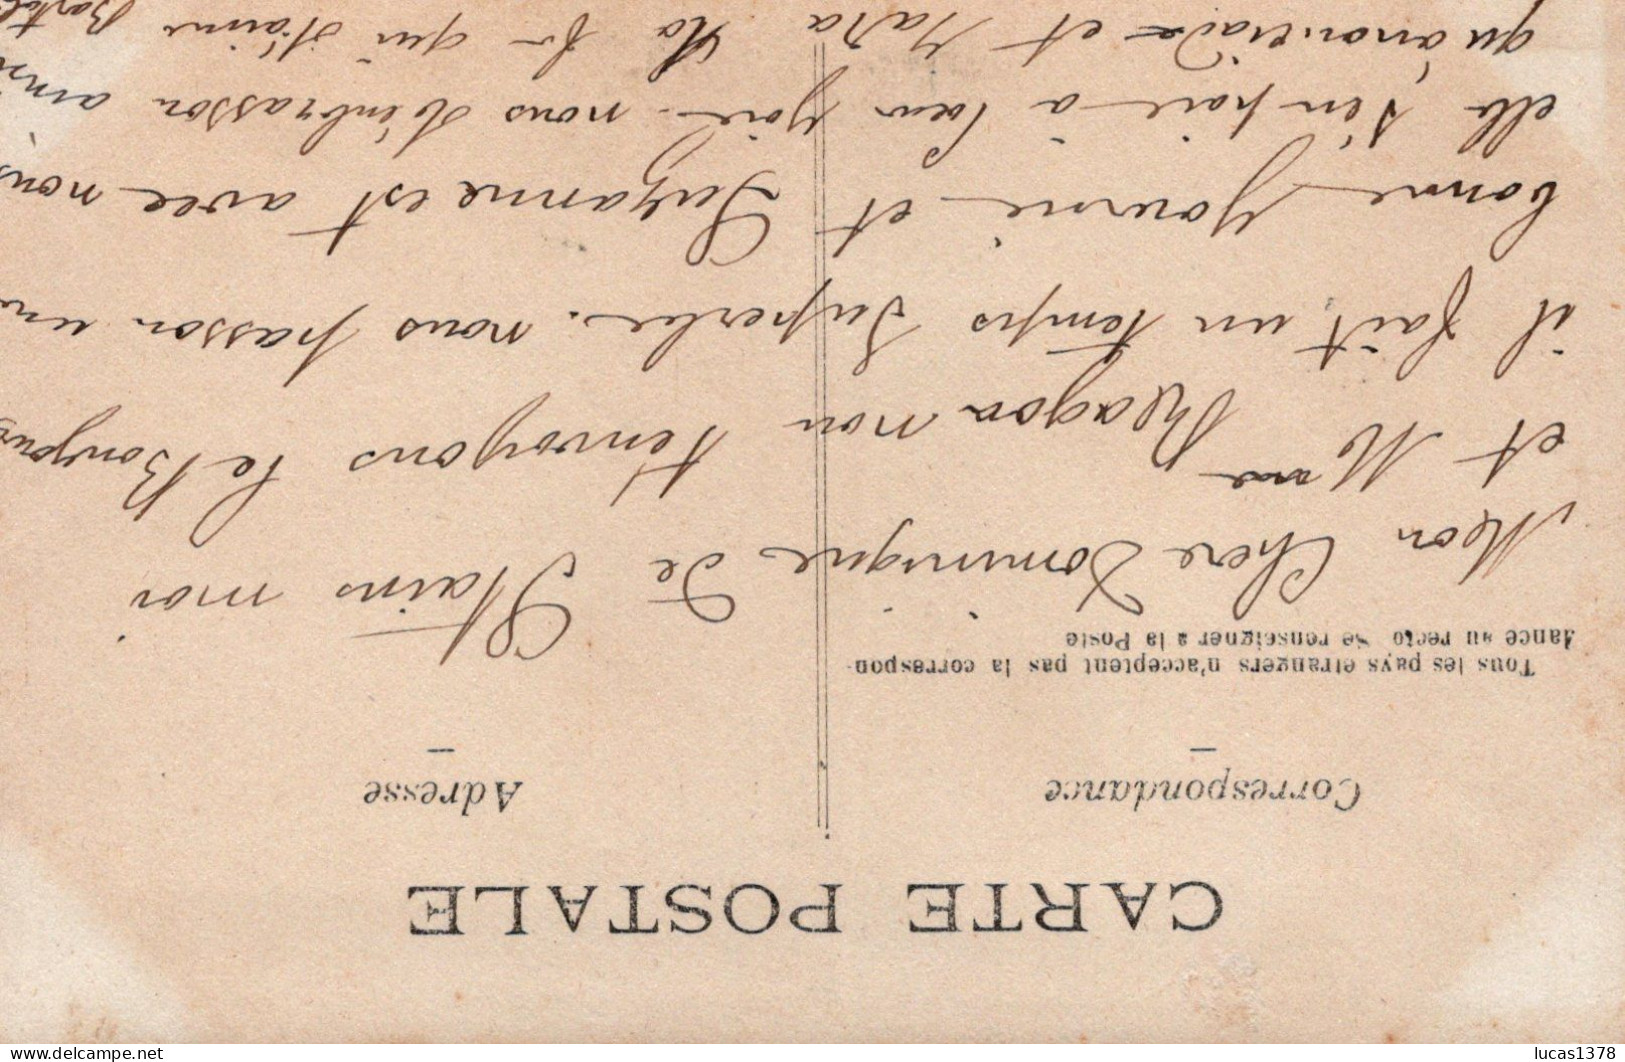 CARTE POSTALE
Correspondance
Adresse
Tous les pays etrangers n'acceptent pas la correspon-
dance au recto Se renseigner a la Poste
Mon Chere Dominique De Stains moi
et Mme Magon nou t'envoyons le Bonjour
il fait un temps superbe. nous passon une
bonne journé et Suzanne est avec nous
elle s'en paie à Coeur joie. nous t'embrasson ainsi
qu' et ta qui t'aime
www.delcampe.net
lucas1378